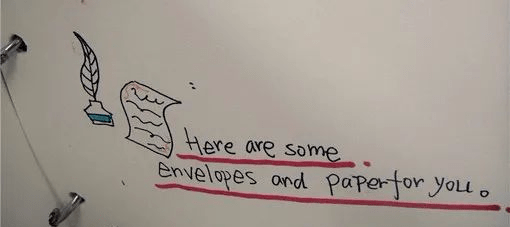 Here are some
envelopes and paper for you。